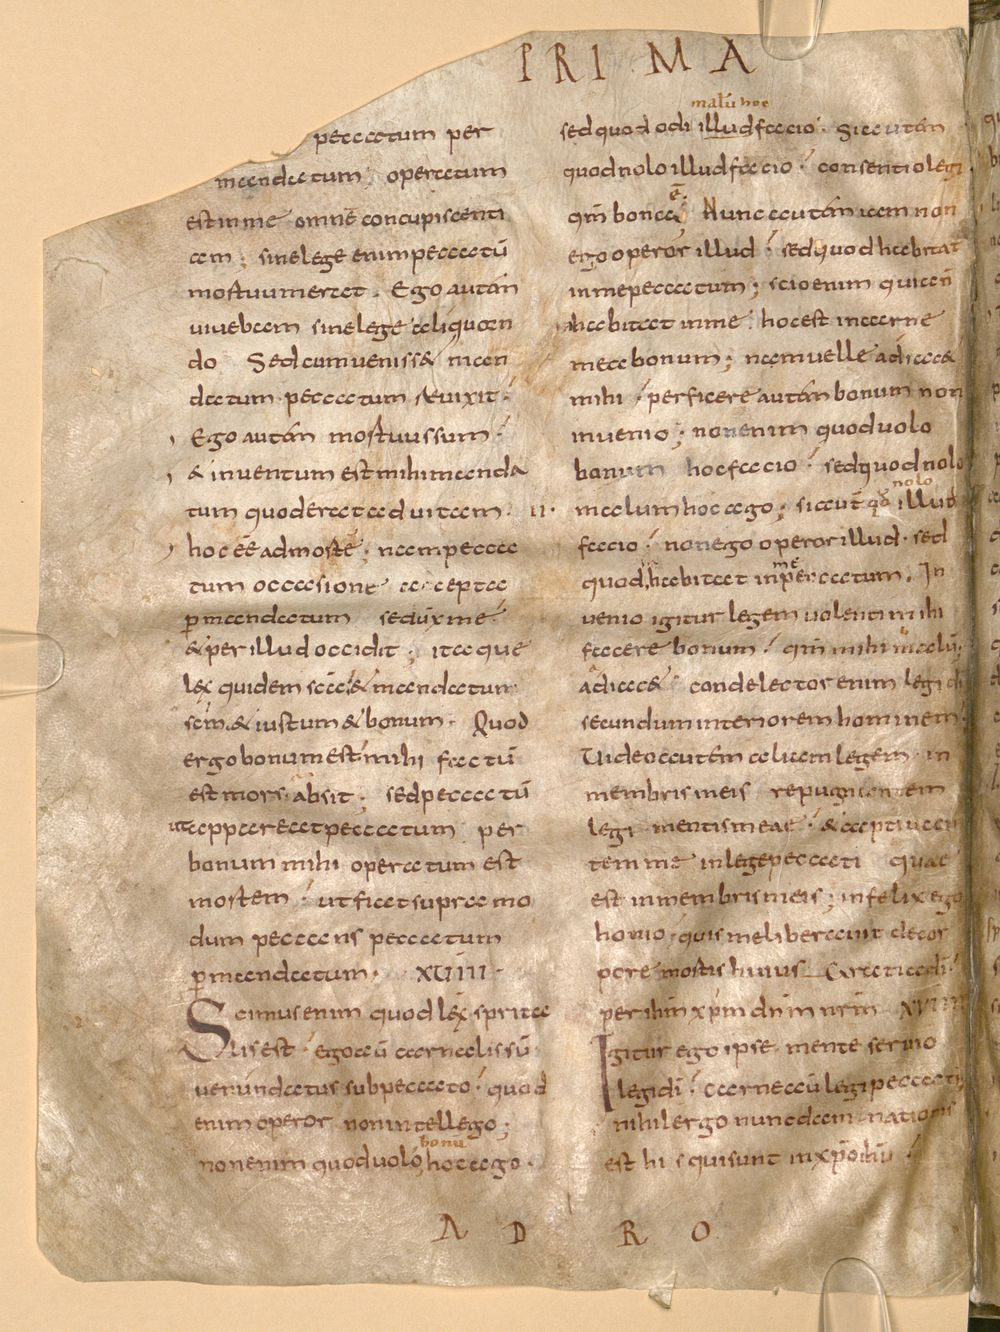 PRIMA
peccatum per
mandatum; operatum
est in me omnē concupiscenti
am; sine lege enim peccatū
mortuum erat. Ego autem
vivebam sine lege aliquan
do Sed cum venisset man
datum peccatum revixit.
Ego autem mortuus sum.
& inventum est mihi manda
tum quod erat ad vitam.
hoc eē ad mortē; nam pecca
tum occasione accepta
p mandatum seduxit me
& per illud occidit; itaque
lex quidem scā & mandatum
scm & iustum & bonum. Quod
ergo bonum est mihi factū
est mors absit; sed peccatū
ut appareat peccatum per
bonum mihi operatum est
mortem ut fiat supra mo
dum peccans peccatum
p mandatum. XVIII.
Scimus enim quod lex sprita
lis est. ego aū carnalis sū
venundatus sub peccato. quod
enim operor non intellego;
bonū
non enim quod volo, hoc ago.
malū hoc
sed quod odi illud facio. Si autem
quod nolo illud facio. consentio legi
qm bona ē. Nunc autem iam non
ego operor illud. sed quod habitat
in me peccatum; scio enim quia n
habitat in me. hoc est in carne
mea bonum; nam velle adiacet
mihi. perficere autem bonum non
invenio; non enim quod volo
bonum hoc facio. sed quod nolo
nolo
II. malum hoc ago; si aut qd illud
facio. non ego operor illud. sed
quod habitat in me peccatum. In
venio igitur legem volenti mihi
facere bonum. qm mihi malū
adiacet condelector enim legi di
secundum interiorem hominem.
Video autem aliam legem in
membris meis repugnantem
legi mentis meae. & captivan
tem me in lege peccati quae
est in membris meis; infelix ego
homo quis me liberavit de cor
pore mortis huius Gratia di.
per ihm xpm dnm nrm XVIIII
Igitur ego ipse mente servio
legi di. carne aū legi peccati;
nihil ergo nunc damnationis
est his qui sunt in xpo ihū.
AD RO